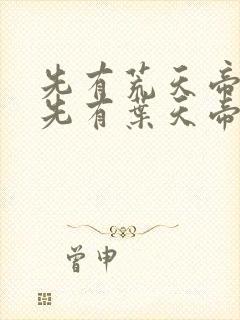 先有荒天帝
先有葉天帝
曾申